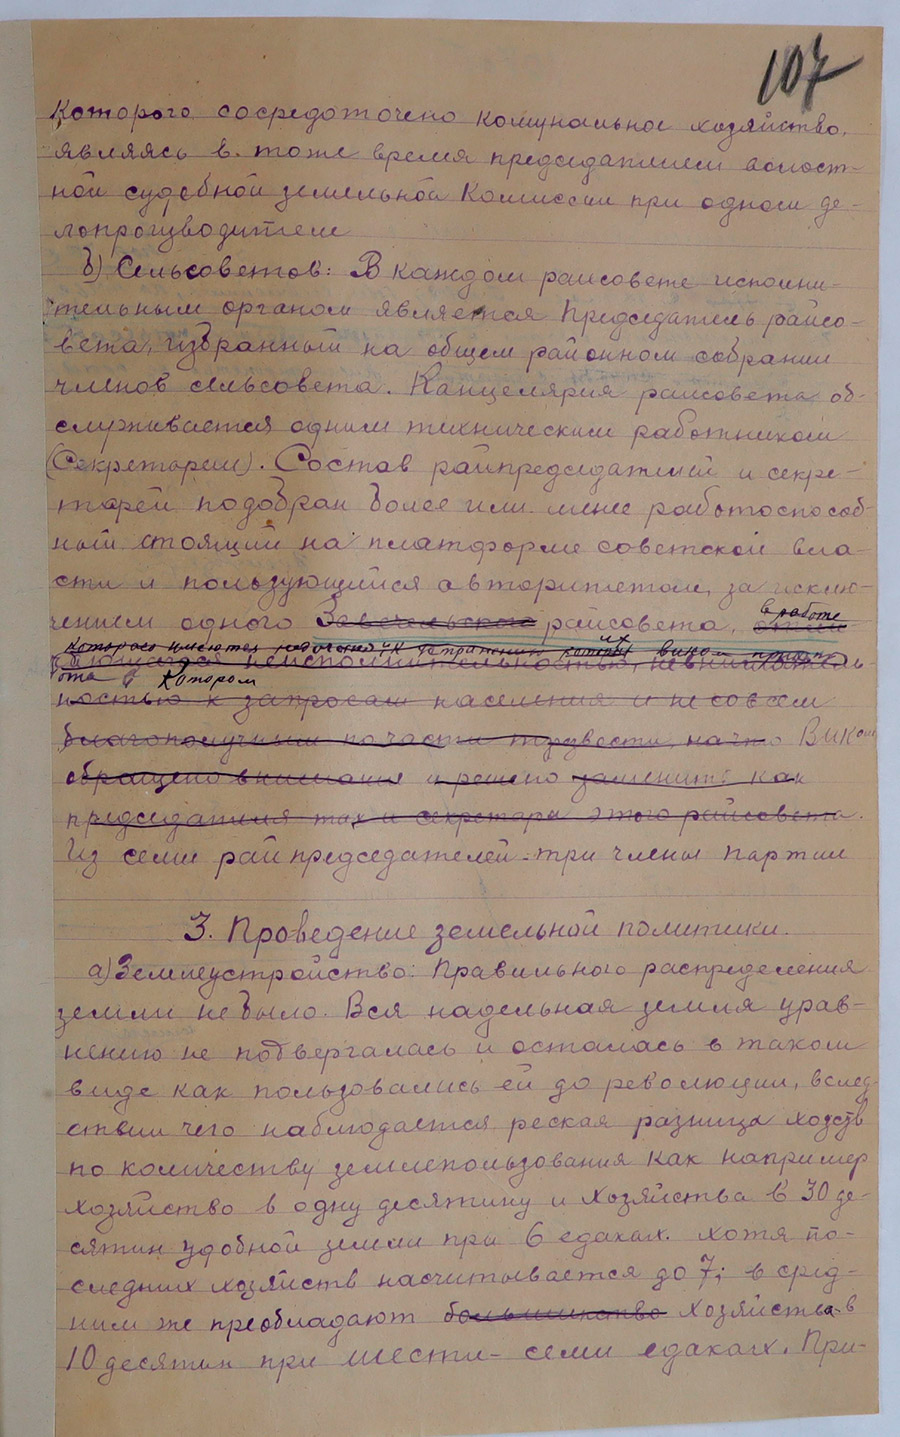 107
которого сосредоточено комунальное хозяйство,
являясь в тоже время председателем волост-
ной судебной земельной Комиссии при одном де-
лопроизводителе
б) Сельсоветов: В каждом райсовете исполни-
тельным органом является Председатель райсо-
вета, избранный на общем районном собрании
членов сельсовета. Канцелярия райсовета об-
служивается одним техническим работником
(Секретарем). Состав райпредседателей и секре-
тарей подобран более или менее работоспособ-
ный стоящий на платформе советской вла-
сти и пользующийся авторитетом, за исклю-
чением одного райсовета, в работе
которого имеются недочеты к устранению которых виком приня-
неисполнительностью, невниматель-
котором
ностью к запросам населения и не совсем
благополучным по части трезвости, на что ВИКом
обращено внимания и решено заменить как
председателя так и секретаря этого райсовета.
Из семи рай председателей - три члены партии
3. Проведение земельной политики.
а) Землеустройство: Правильного распределения
земли не было. Вся надельная земля урав-
нению не подвергалась и осталась в таком
виде как пользовались ей до революции, вслед-
ствии чего наблюдается реская разница хозств
по количеству землепользования как например
хозяйство в одну десятину и хозяйства в 30 де-
сятин удобной земли при 6 едаках. хотя по-
следних хозяйств насчитывается до 7; в сред-
ним же преобладают большинство хозяйства в
10 десятин при шести - семи едаках. При-